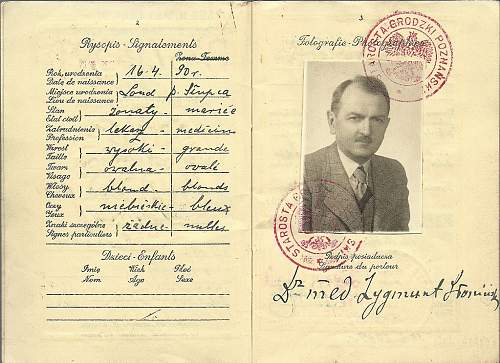 2
Rysopis - Signalements
Żona - Femme
Rok urodzenia
Date de naissance
16.4. 90 r.
Miejsce urodzenia
Lieu de naissance
Ląd p. Słupca
Stan
Etat civil
żonaty - marié
Zatrudnienie
Profession
lekarz - médecin
Wzrost
Taille
wysoki - grande
Twarz
Visage
owalna - ovale
Włosy
Cheveux
blond - blonds
Oczy
Yeux
niebieskie - bleux
Znaki szczególne
Signes particuliers
żadne - nulles
Dzieci - Enfants
Imię Wiek Płeć
Nom Age Sexe
3
Fotografie - Photographies
STAROSTA GRODZKI POZNAŃSKI
STAROSTA
Podpis posiadacza
Signature du porteur
Dr med Zygmunt